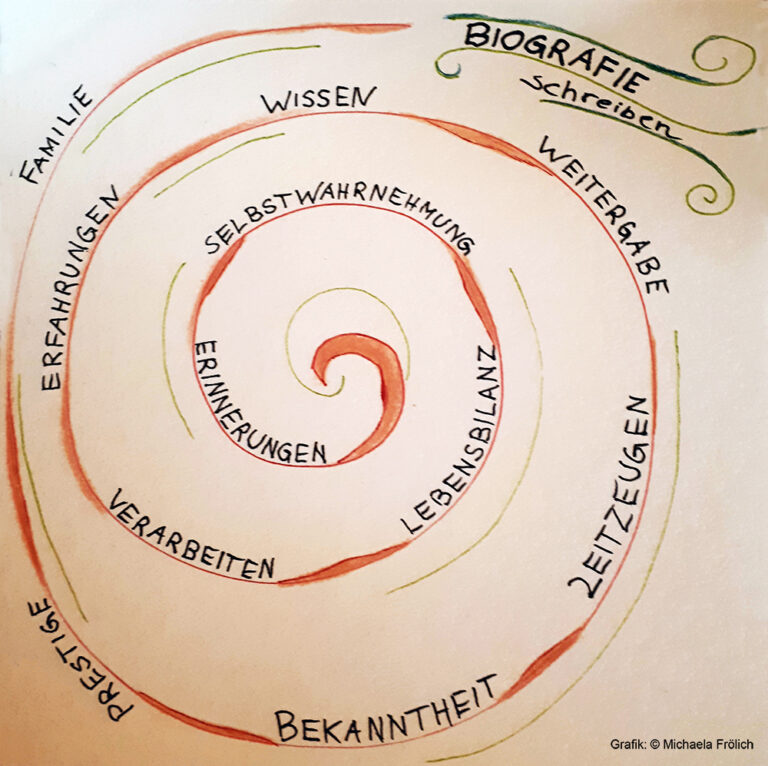 BIOGRAFIE
schreiben
FAMILIE
WISSEN
WEITERGABE
ERFAHRUNGEN
SELBSTWAHRNEHMUNG
ERINNERUNGEN
LEBENSBILANZ
ZEITZEUGEN
VERARBEITEN
PRESTIGE
BEKANNTHEIT
Grafik: © Michaela Frölich